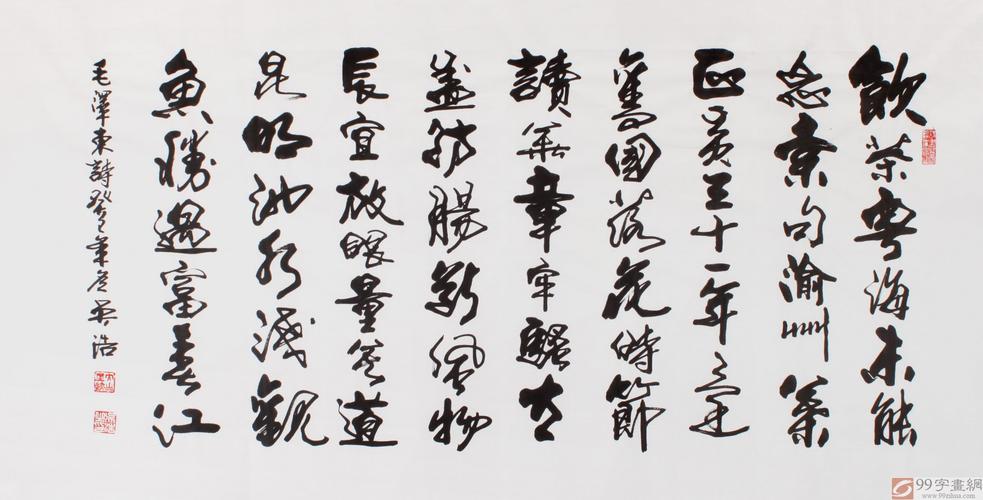 飲茶粵海未能
忘索句渝州葉
正黃三十一年還
舊國落花時節
讀華章牢騷太
盛防腸斷風物
長宜放眼量莫道
昆明池水淺觀
魚勝過富春江
毛澤東詩癸巳年 浩
99字畫網
www.99zihua.com